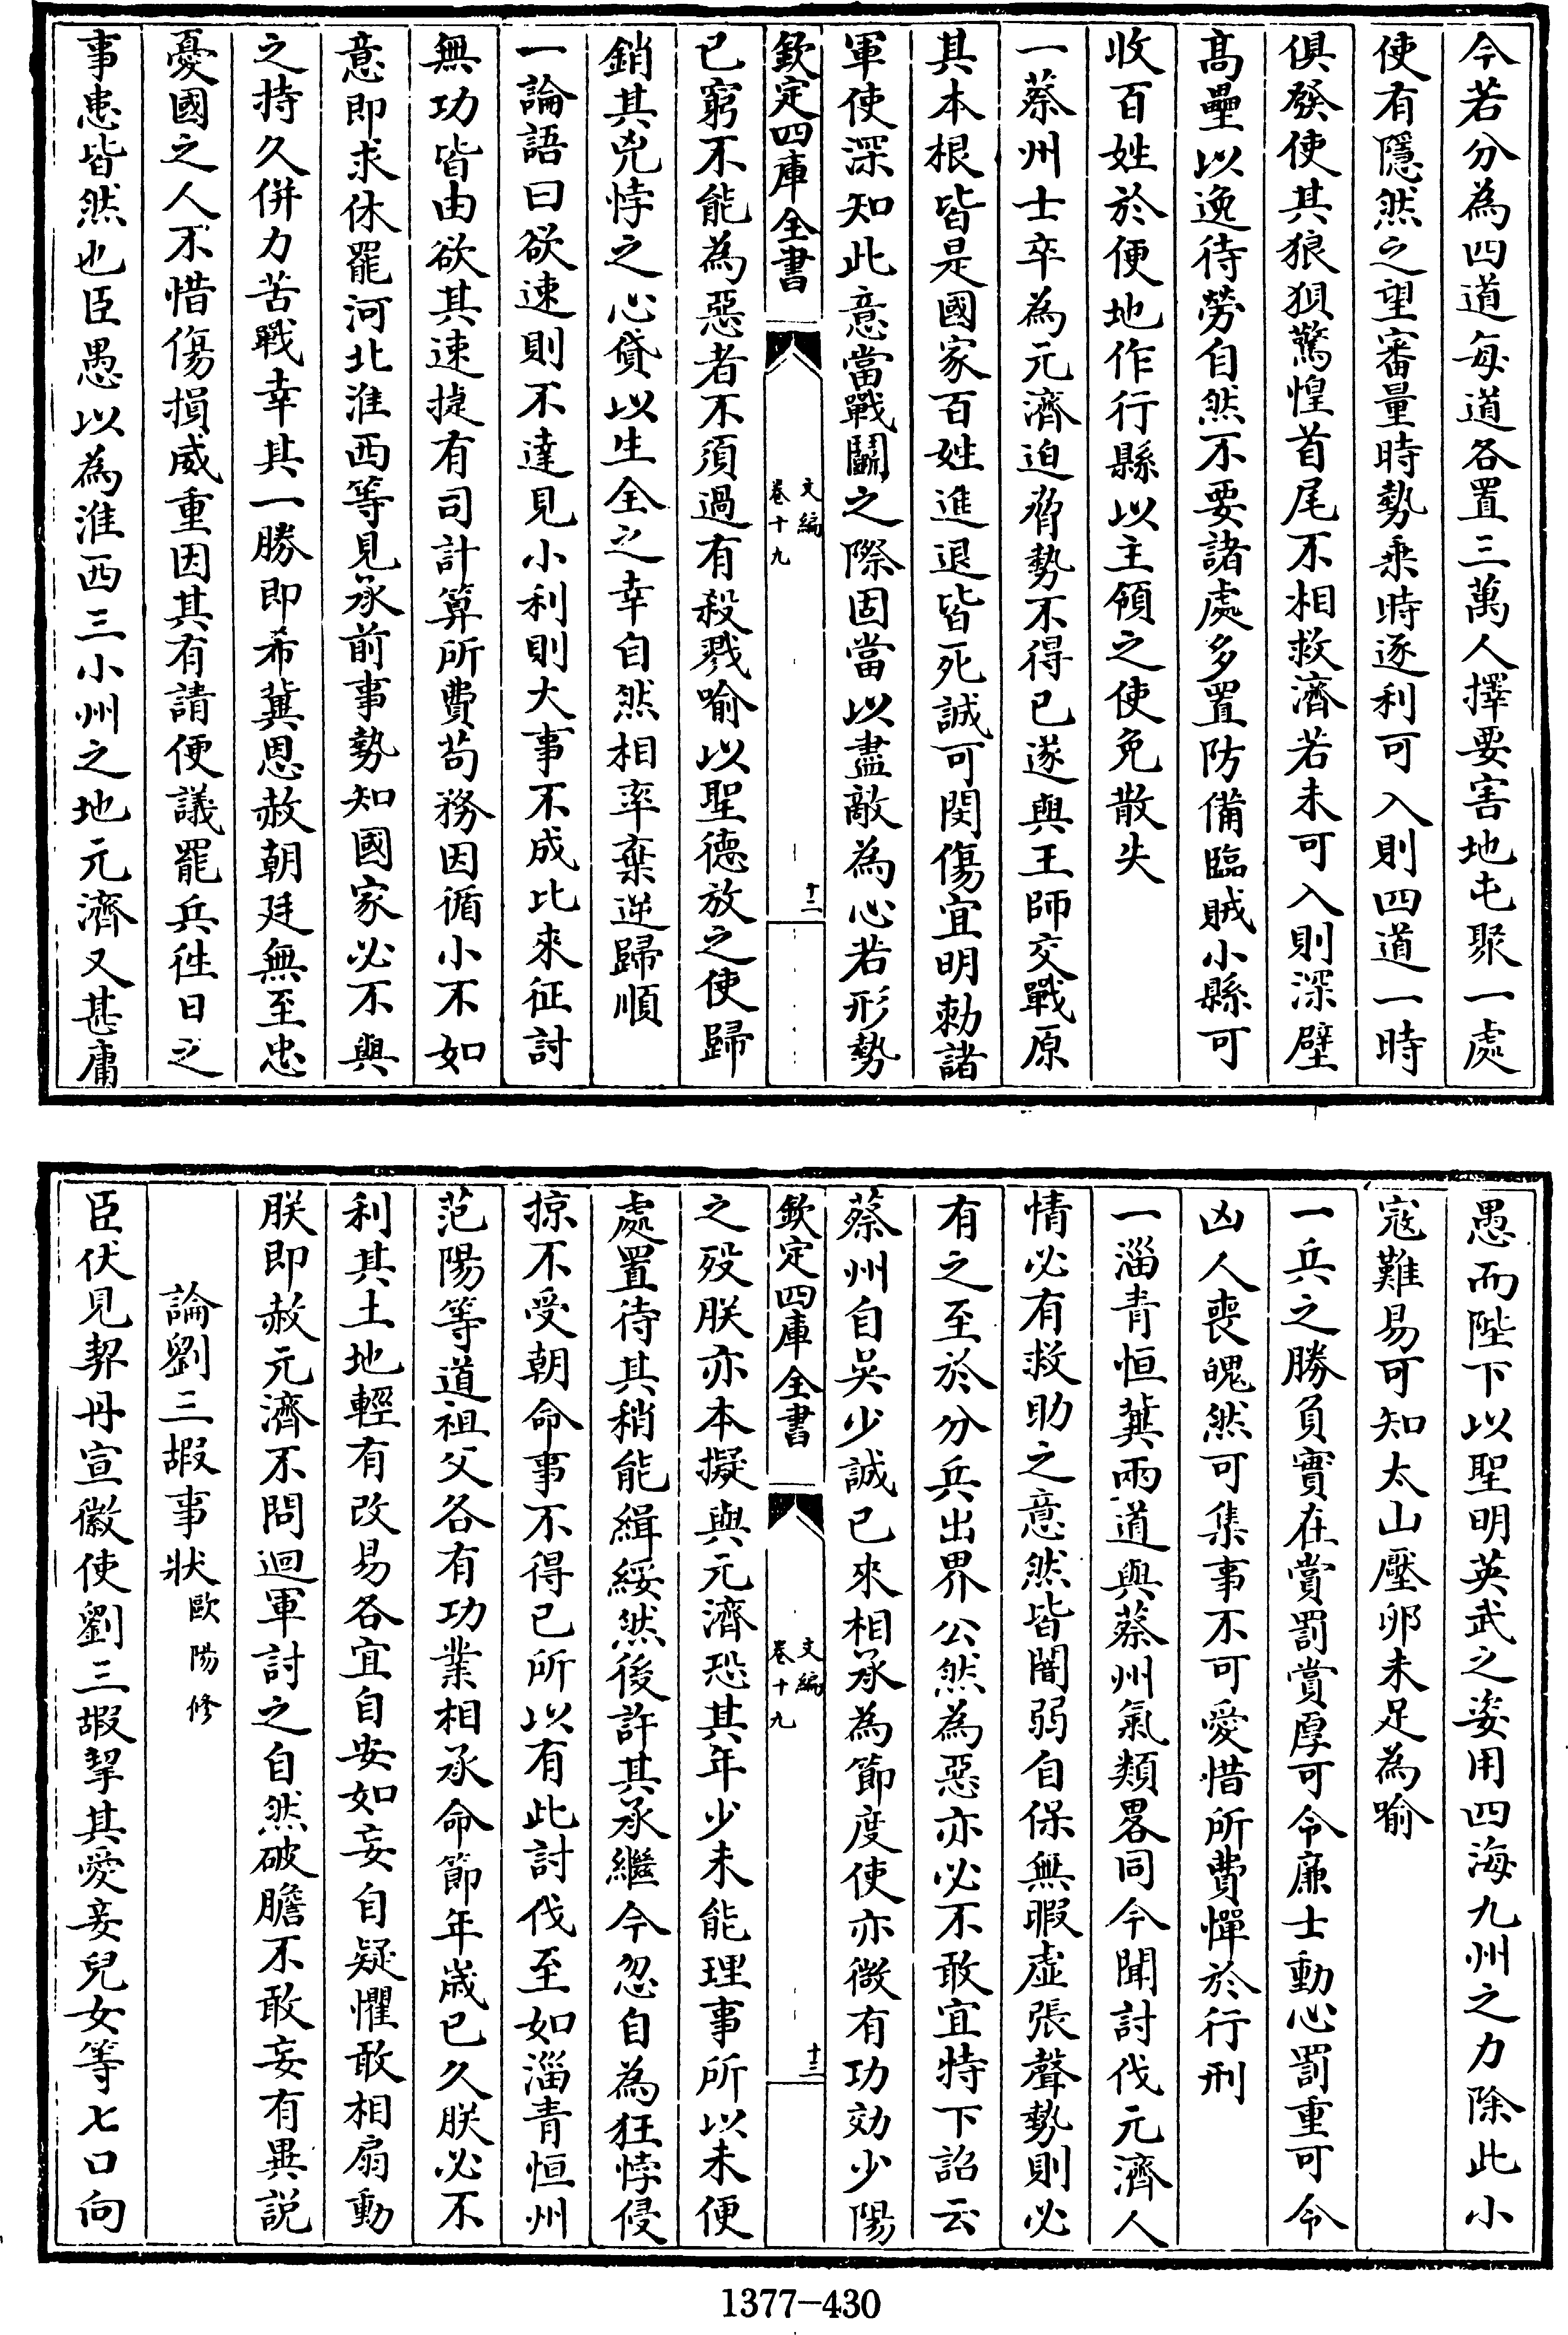 今若分為四道每道各置三萬人擇要害地屯聚一處
使有隱然之望審量時勢乗時逐利可入則四道一時
俱發使其狼狽驚惶首尾不相救濟若未可入則深壁
髙壘以逸待勞自然不要諸處多置防備臨賊小縣可
收百姓於便地作行縣以主領之使免散失
一蔡州士卒為元濟迫脅勢不得已遂與王師交戰原
其本根皆是國家百姓進退皆死誠可閔傷宜明勅諸
軍使深知此意當戰鬭之際固當以盡敵為心若形勢
欽定四庫全書
文編
卷十九
十二
已窮不能為惡者不須過有殺戮喻以聖徳放之使歸
銷其兇悖之心貸以生全之幸自然相率棄逆歸順
一論語曰欲速則不達見小利則大事不成比來征討
無功皆由欲其速捷有司計算所費苟務因循小不如
意即求休罷河北淮西等見承前事勢知國家必不與
之持久併力苦戰幸其一勝即希冀恩赦朝廷無至忠
憂國之人不惜傷損威重因其有請便議罷兵徃日之
事患皆然也臣愚以為淮西三小州之地元濟又甚庸
愚而陛下以聖明英武之姿用四海九州之力除此小
宼難易可知太山壓卵未足為喻
一兵之勝負實在賞罰賞厚可令亷士動心罰重可令
凶人喪魄然可集事不可愛惜所費憚於行刑
一淄青恒冀兩道與蔡州氣類畧同今聞討伐元濟人
情必有救助之意然皆闇弱自保無暇虛張聲勢則必
有之至於分兵出界公然為惡亦必不敢宜特下詔云
蔡州自吳少誠已來相承為節度使亦微有功効少陽
欽定四庫全書
文編
卷十九
十三
之歿朕亦本擬與元濟恐其年少未能理事所以未便
處置待其稍能緝綏然後許其承繼今忽自為狂悖侵
掠不受朝命事不得已所以有此討伐至如淄青恒州
范陽等道祖父各有功業相承命節年嵗已久朕必不
利其土地輕有改易各宜自安如妄自疑懼敢相扇動
朕即赦元濟不問迴軍討之自然破膽不敢妄有異説
論劉三嘏事狀歐陽修
臣伏見契丹宣徽使劉三嘏挈其愛妾兒女等七口向
1377-430